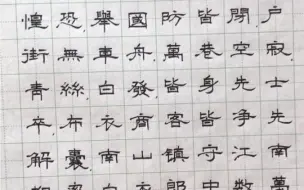 惶恐.舉國防皆閉户
街無車舟萬巷空寂
青絲.白發.皆身先士
卒.布衣商客皆净先
解囊.南山鎮守江南
白衣郎中數萬